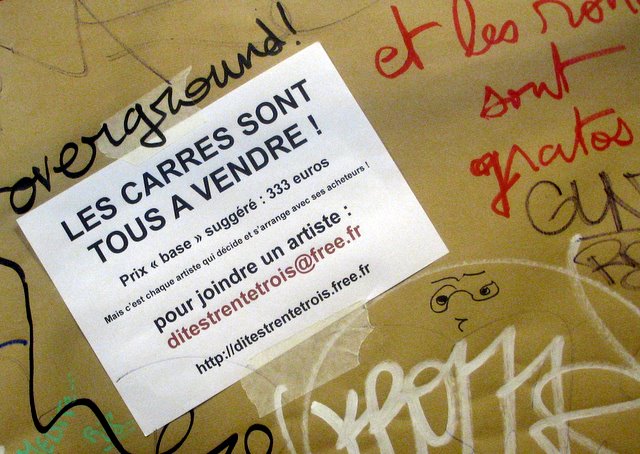 overground!
et les ron
sont
gratos
LES CARRES SONT
TOUS A VENDRE !
Prix « base » suggéré : 333 euros
Mais c'est chaque artiste qui décide et s'arrange avec ses acheteurs !
pour joindre un artiste :
ditestrentetrois@free.fr
http://ditestrentetrois.free.fr